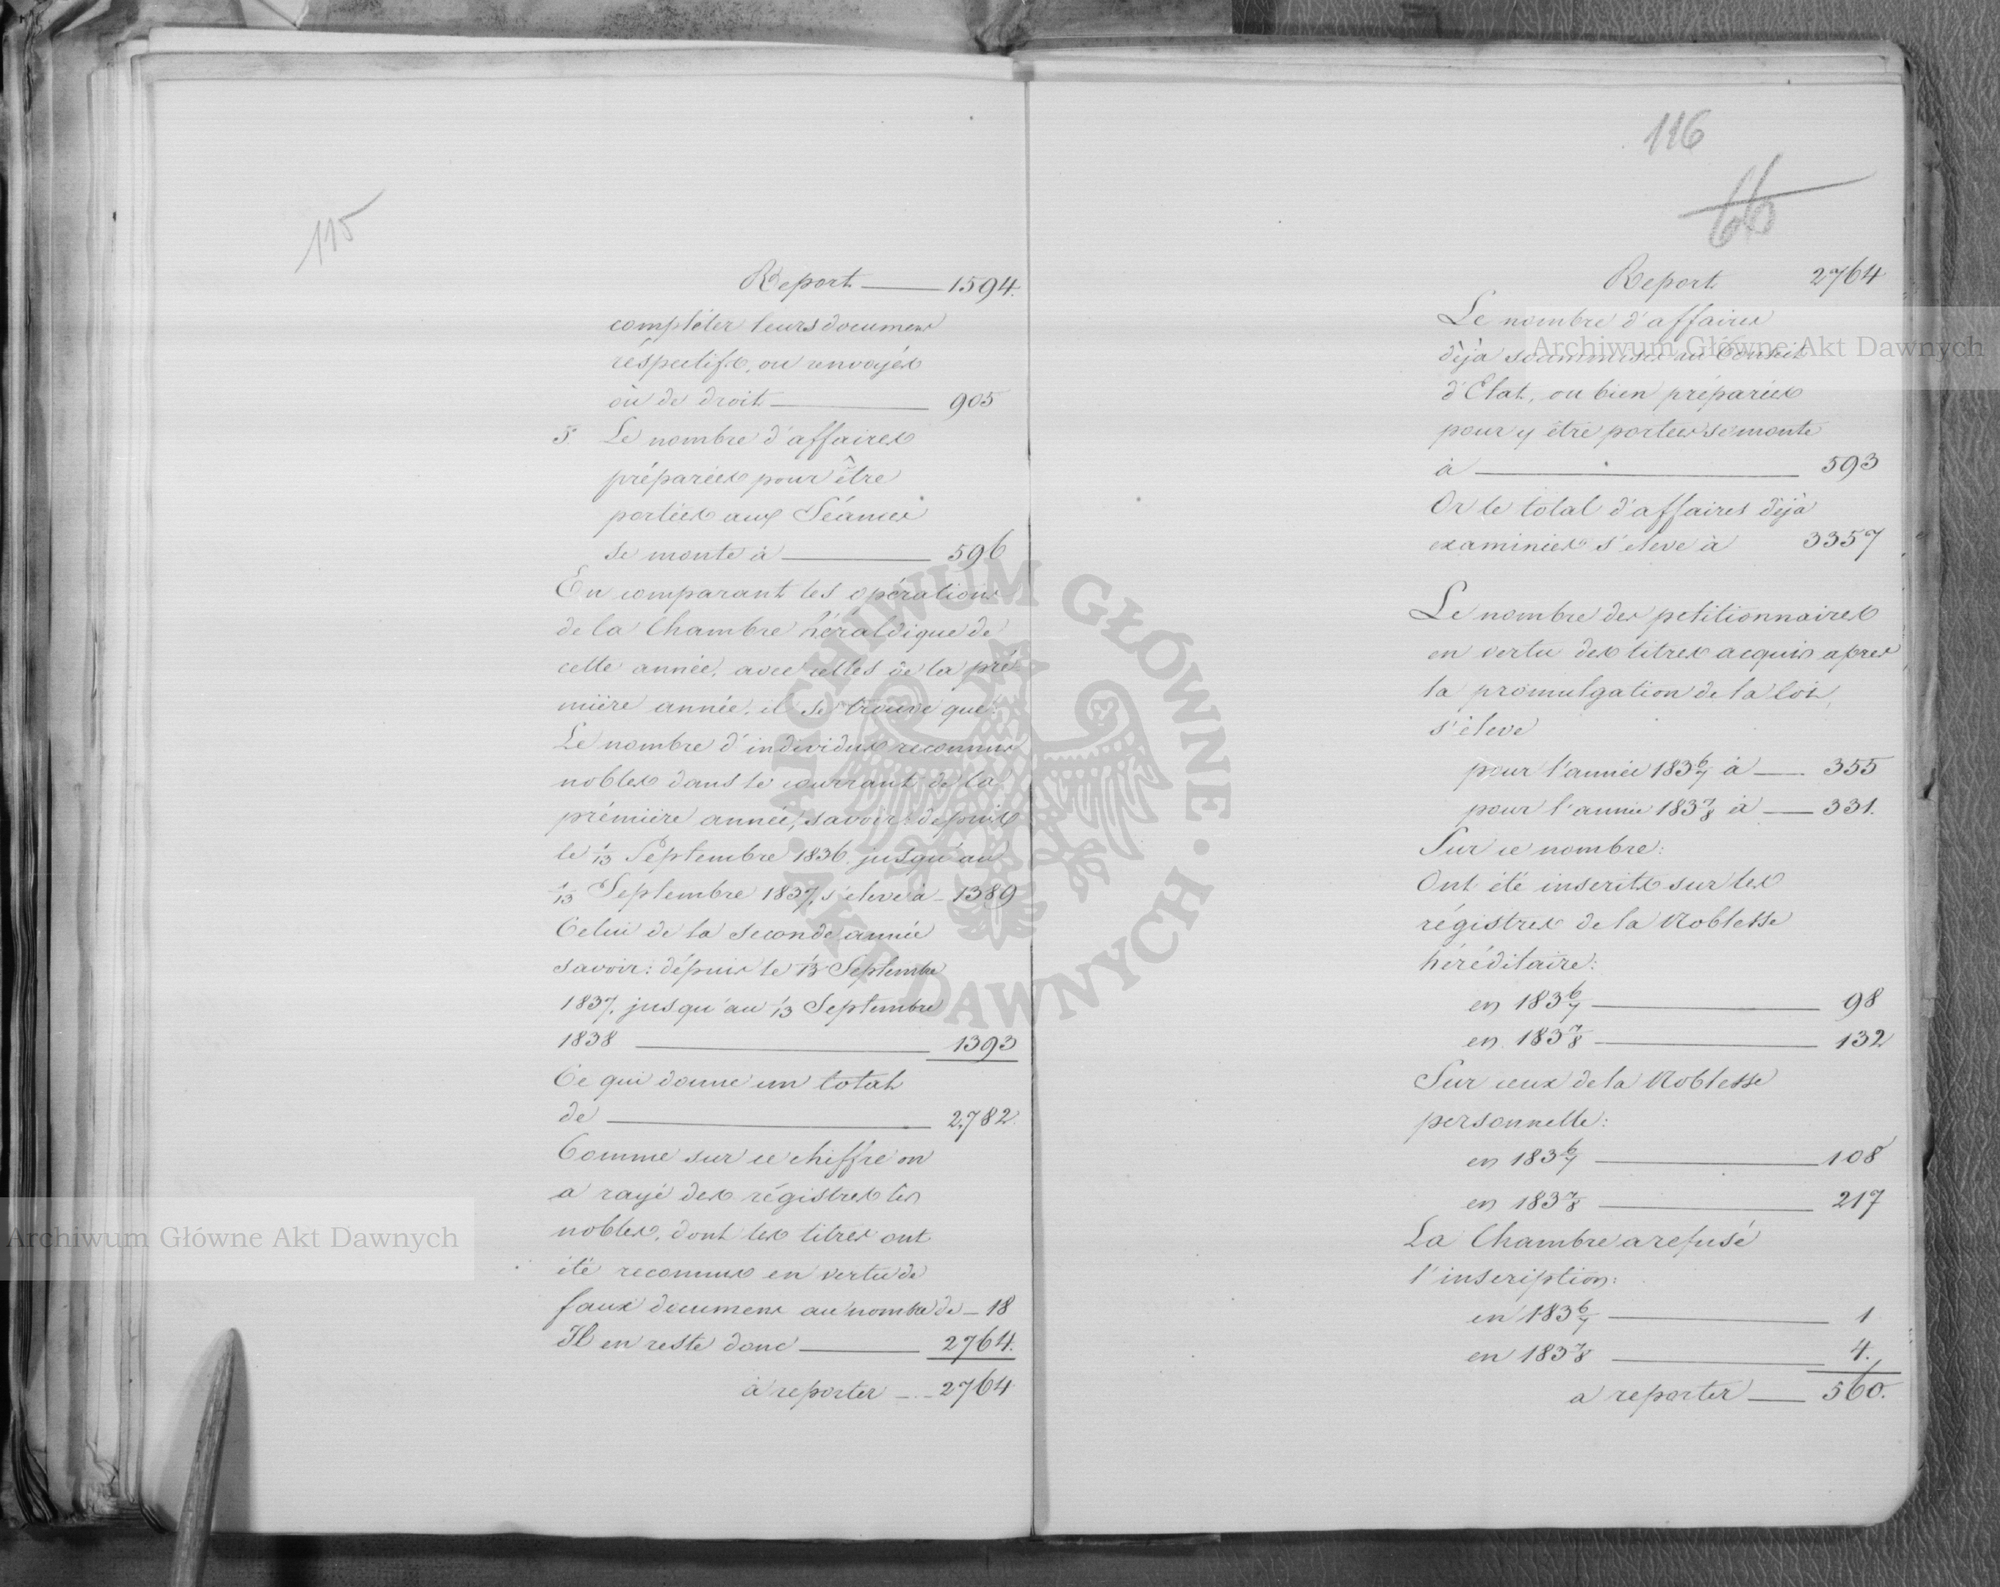 115
Report — 1594.
compléter leurs documens
réspectifs, ou renvoyés
où de droit — 905
5. Le nombre d'affaires
préparées pour être
portées aux Séances
se monte à — 596
En comparant les opérations
de la Chambre héraldique de
cette année, avec celles de la pré-
mière année, il se trouve que:
Le nombre d'individus reconnus
nobles dans le courrant de la
prémière année, savoir: depuis
le 1/13 Septembre 1836. jusqu'au
1/13 Septembre 1837, s'eleve à — 1389
Celui de la seconde année
savoir: dépuis le 1/13 Septembre
1837, jusqu'au 1/13 Septembre
1838 — 1393
Ce qui donne un total
de — 2782.
Comme sur ce chiffre on
a rayé des régistres les
nobles, dont les titres ont
été reconnus en vertu de
faux documens au nombre de — 18
Il en reste donc — 2764.
à reporter — 2764
116
66
Report 2764
Le nombre d'affaires
déjà soummises au Conseil
d'Etat, ou bien préparées
pour y être portées se monte
à — 593
Or le total d'affaires déjà
examinées s'eleve à 3357
Le nombre des petitionnaires
en vertu des titres acquis apres
la promulgation de la loi,
s'éleve
pour l'année 1836/7 à — 355
pour l'année 1837/8 à — 331.
Sur ce nombre:
Ont été inscrits sur les
régistres de la Noblesse
héréditaire:
en 1836/7 — 98
en 1837/8 — 132
Sur ceux de la Noblesse
personnelle:
en 1836/7 — 108
en 1837/8 — 217
La Chambre a refusé
l'inscription:
en 1836/7 — 1
en 1837/8 — 4.
a reporter — 560.
Archiwum Główne Akt Dawnych
Archiwum Główne Akt Dawnych
ARCHIWUM GŁÓWNE · AKT DAWNYCH ·